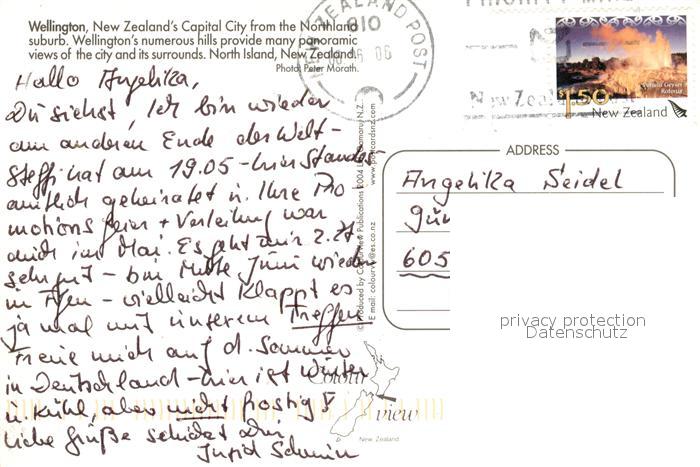 Wellington, New Zealand's Capital City from the Northland
suburb. Wellington's numerous hills provide many panoramic
views of the city and its surrounds. North Island, New Zealand.
Photo: Peter Morath.
NEW ZEALAND POST
810
06
New Zealand
1.50
Pohutu Geyser
Rotorua
New Zealand
Hallo Angelika,
Du siehst, Ich bin wieder
am anderen Ende der Welt -
Steffi hat am 19.05 - hier Standes-
amtlich geheiratet u. Ihre Pro-
motionsfeier + Verleihung war
auch im Mai. Es geht mir z. Zt
sehr gut - bin Mitte Juni wieder
in - vielleicht klappt es
ja mal mit unserem Treffen
Freue mich auf d. Sommer
in Deutschland - hier ist Winter
u. kühl, aber nicht frostig!
Liebe Grüße schickt Dir
Produced by Colourview Publications © 2004 Ltd, Oamaru N.Z.
E mail: colourview@es.co.nz
www.postcardsnz.com
ADDRESS
Angelika Seidel
605
privacy protection
Datenschutz
Colour
view
New Zealand